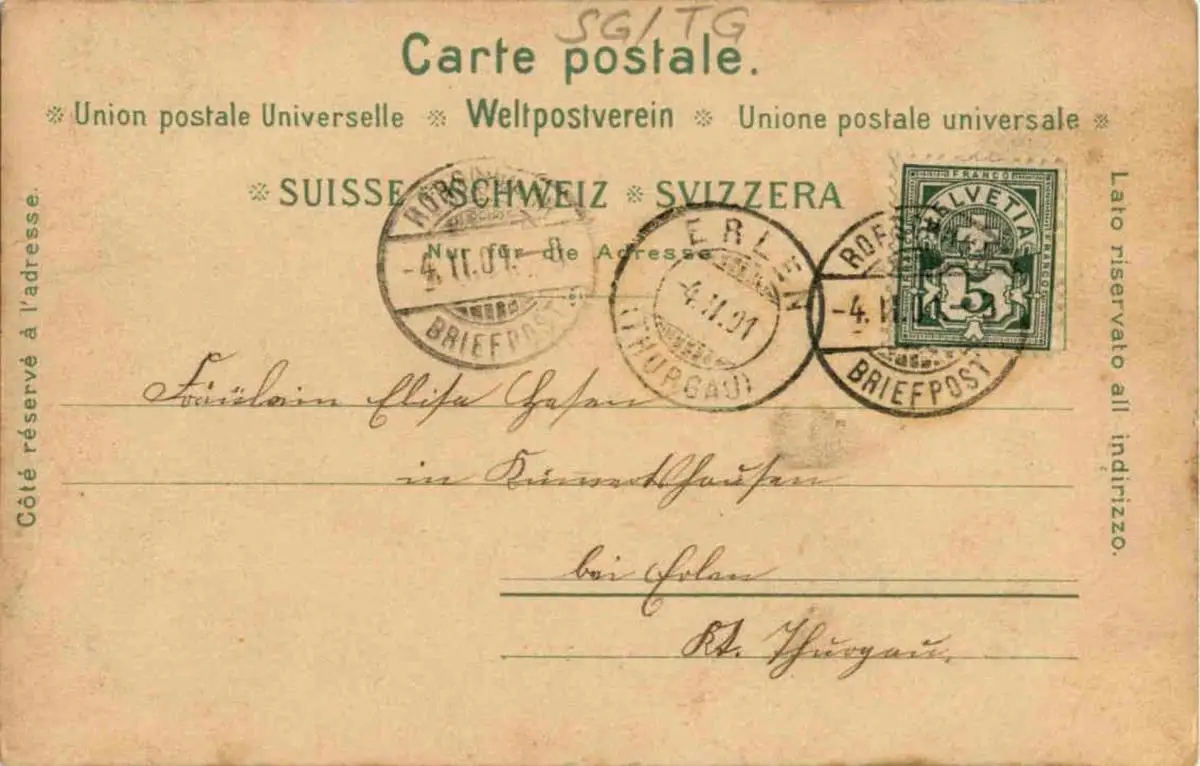 SG/TG
Carte postale.
Union postale Universelle Weltpostverein Unione postale universale
SUISSE SCHWEIZ SVIZZERA
Nur für die Adresse
Côté réservé à l'adresse.
Lato riservato all indirizzo.
RORSCHACH
-4.II.01.-8
BRIEFPOST
ERLEN
-4.II.01
(THURGAU)
-4.II.01.-8
BRIEFPOST
FRANCO
HELVETIA
FRANCO
5
Fräulein Elisa Hasen
in Kümmertshausen
bei Erlen
Kt. Thurgau.